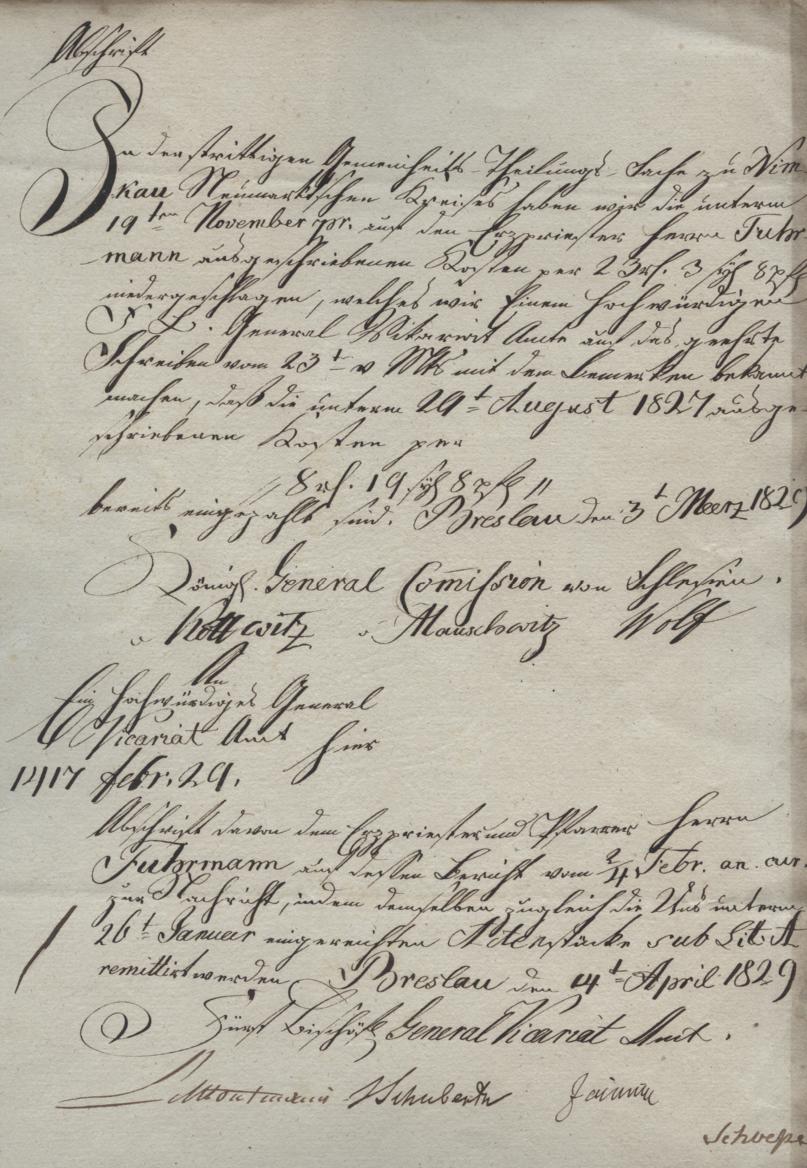 Abschrift
In der strittigen Gemeinheits-Theilungs-Sache zu Nim-
kau Neumarktschen Kreises haben wir die unterm
19ten November pr. auf den Erzpriester Herrn Fuhr
mann ausgeschriebenen Kosten per 23 rl. 3 sgl 8 pfg
niedergeschlagen, welches wir Einem Hochwürdigen
General Vikariat Amte auf das geehrte
Schreiben vom 23t v Mts mit dem Bemerken bekannt
machen, daß die unterm 29t August 1827 ausge-
schriebenen Kosten per
8 rl. 19 sgl 8 pfg "
bereits eingezahlt sind. Breslau den 3t Maerz 1829
Königl. General Comission von Schlesien.
v Kottwitz v Mauschwitz Wolf
An
Ein Hochwürdiges General
Vicariat Amt hier
febr. 29.
Abschrift davon dem Erzpriester und Pfarrer Herrn
Fuhrmann auf dessen Bericht vom 2/4 Febr. an. cur.
zur Nachricht, indem demselben zugleich die Uns unterm
26t Januar eingereichten Actenstücke sub Lit. A
remittirt werden Breslau den 14t April 1829
Fürst Bischöfl General Vicariat Amt.
Schubert